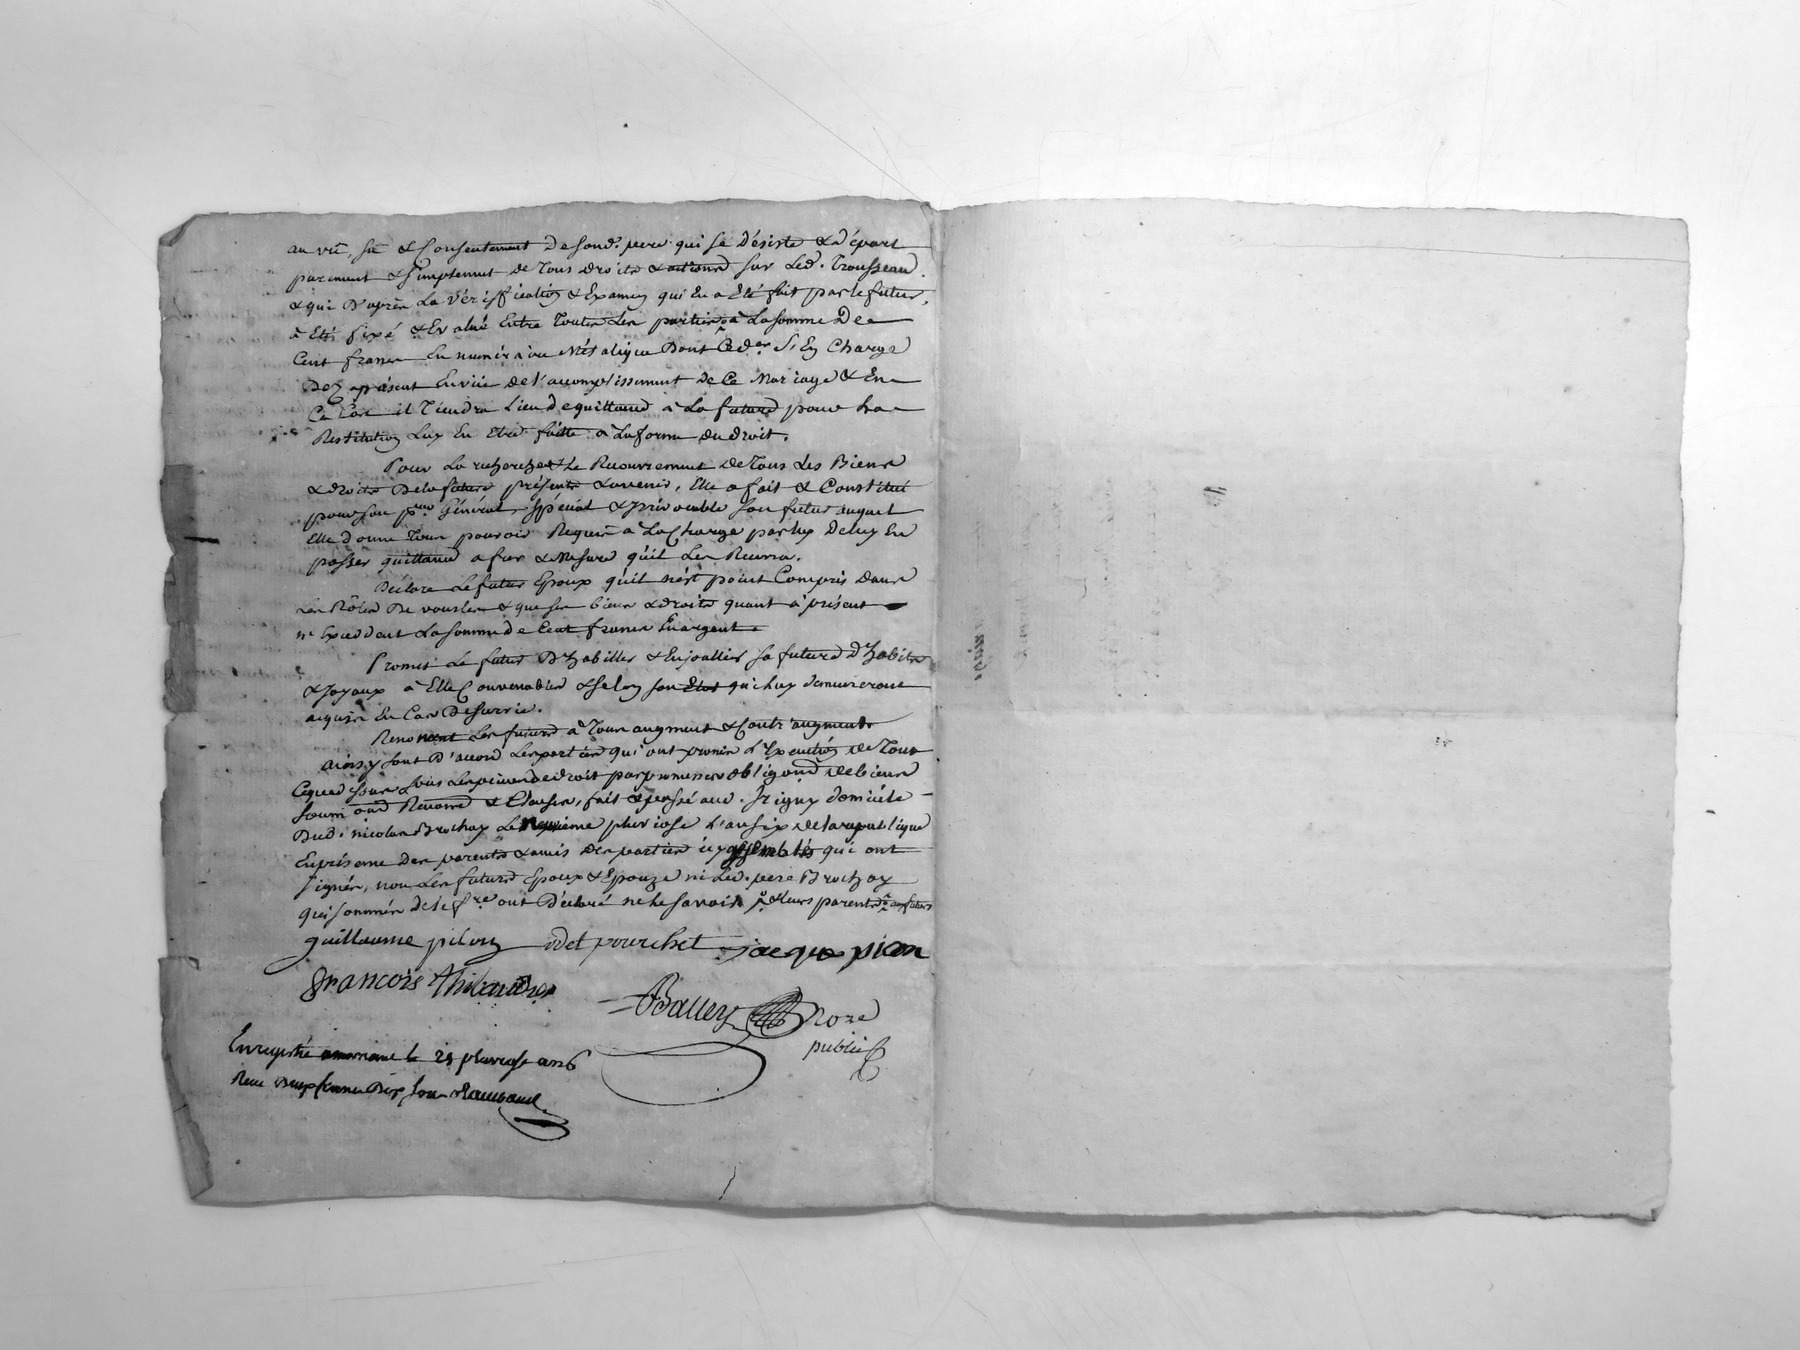 au vû, sû & Consentement de sond. pere qui se désiste & départ
purement & Simplement de Tous droits & actions sur led. Trousseau
& qui d'après La Vérification & Examen qui En a Eté fait par le futur,
à Eté fixé & Evalué Entre Toutes Les parties à La Somme De
Cent francs En numéraire Métalique Dont Ced.er S'En Charge
Des àprésent Envüe de l'accomplissement De Ce Mariage & En
Ce Cas il Tiendra Lieu de quittance à La future pour La
Restitution Luy En Etre faitte à La forme du droit.
Pour La recherche & Le Recouvrement de Tous Les Biens
& droits De la future présents & avenir, Elle a fait & Constitué
pour son p.eur Général, Spécial & irrévocable son futur auquel
Elle donne Tous pouvoirs Requis à La Charge par luy De luy En
passer quittance a fur & Mesure qu'il Les Recevra.
Déclare Le futur Epoux qu'il n'est point Compris dans
Les Rôles De & que ses biens & droits quant à présent
n'Excedent La somme de Cent francs En argent.
Promet Le futur D'habiller & Enjoaller sa future d'habits
& Joyaux à Elle Convenables & selon son Etat qui luy demeureront
acquis En Cas De survie.
Renoncent Les futurs à Tous augment & Contr'augment
ainsy sont D'accord Les parties qui ont promis L'Exécution de Tout
Ceque dessus sous Les peines de droit par promesses obligond de biens
soumi.ond Renond & Clauses, fait & passé aud. Irigny domicile
Dud. nicolas Brochay Le pluviose l'an six de la republique
En présence des parents & amis des parties icy assemblés qui ont
signés, non Les futurs Epoux & Epouze ni Led. pere Brochay
qui sommés de le f.re ont Déclaré ne le savoir & leurs parents
guillaume pilon odet pourchet jacque pion
françois Thibaudier
Balley Nore
public
Enregistré le 25 pluviose an 6
Reçu Deux francs Dix sous